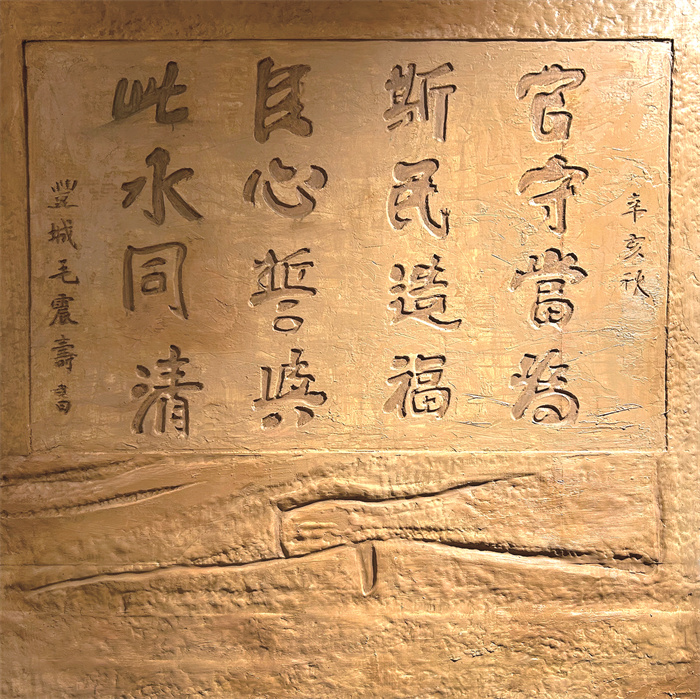 辛亥秋
官守當為
斯民造福
自心誓與
此水同清
豐城毛震壽書